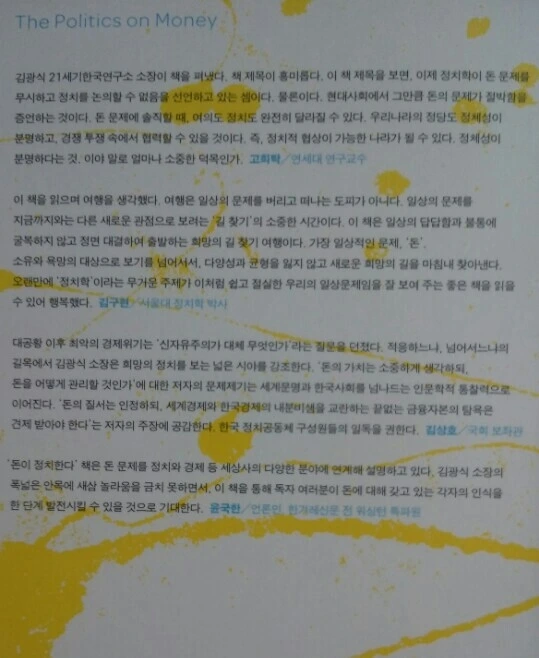 The Politics on Money
김광식 21세기한국연구소 소장이 책을 펴냈다. 책 제목이 흥미롭다. 이 책 제목을 보면, 이제 정치학이 돈 문제를
무시하고 정치를 논의할 수 없음을 선언하고 있는 셈이다. 물론이다. 현대사회에서 그만큼 돈의 문제가 절박함을
증언하는 것이다. 돈 문제에 솔직할 때, 여의도 정치도 완전히 달라질 수 있다. 우리나라의 정당도 정체성이
분명하고, 경쟁 투쟁 속에서 협력할 수 있을 것이다. 즉, 정치적 협상이 가능한 나라가 될 수 있다. 정체성이
분명하다는 것, 이야 말로 얼마나 소중한 덕목인가. 고희탁/연세대 연구교수
이 책을 읽으며 여행을 생각했다. 여행은 일상의 문제를 버리고 떠나는 도피가 아니다. 일상의 문제를
지금까지와는 다른 새로운 관점으로 보려는 '길 찾기'의 소중한 시간이다. 이 책은 일상의 답답함과 불통에
굴복하지 않고 정면 대결하여 출발하는 희망의 길 찾기 여행이다. 가장 일상적인 문제, '돈'.
소유와 욕망의 대상으로 보기를 넘어서서, 다양성과 균형을 잃지 않고 새로운 희망의 길을 마침내 찾아낸다.
오랜만에 '정치학'이라는 무거운 주제가 이처럼 쉽고 절실한 우리의 일상문제임을 잘 보여 주는 좋은 책을 읽을
수 있어 행복했다. 김구현/서울대 정치학 박사
대공황 이후 최악의 경제위기는 '신자유주의가 대체 무엇인가'라는 질문을 던졌다. 적응하느냐, 넘어서느냐의
길목에서 김광식 소장은 희망의 정치를 보는 넓은 시야를 강조한다. '돈의 가치는 소중하게 생각하되,
돈을 어떻게 관리할 것인가'에 대한 저자의 문제제기는 세계문명과 한국사회를 넘나드는 인문학적 통찰력으로
이어진다. '돈의 질서는 인정하되, 세계경제와 한국경제의 내분비샘을 교란하는 끝없는 금융자본의 탐욕은
견제 받아야 한다'는 저자의 주장에 공감한다. 한국 정치공동체 구성원들의 일독을 권한다. 김상호/국회 보좌관
'돈이 정치한다' 책은 돈 문제를 정치와 경제 등 세상사의 다양한 분야에 연계해 설명하고 있다. 김광식 소장의
폭넓은 안목에 새삼 놀라움을 금치 못하면서, 이 책을 통해 독자 여러분이 돈에 대해 갖고 있는 각자의 인식을
한 단계 발전시킬 수 있을 것으로 기대한다. 윤국한/언론인, 한겨레신문 전 워싱턴 특파원